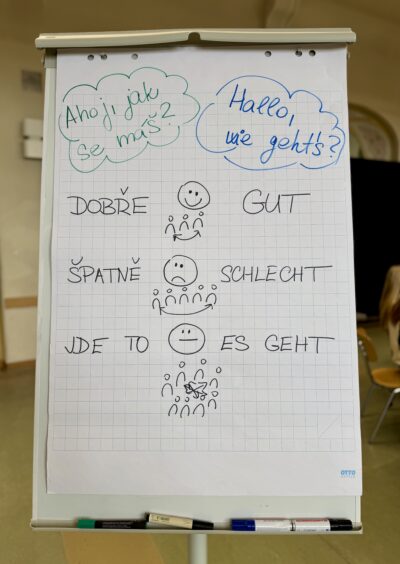 Ahoj, jak
se máš?
Hallo,
wie geht's?
DOBŘE GUT
ŠPATNĚ SCHLECHT
JDE TO ES GEHT
OTTO